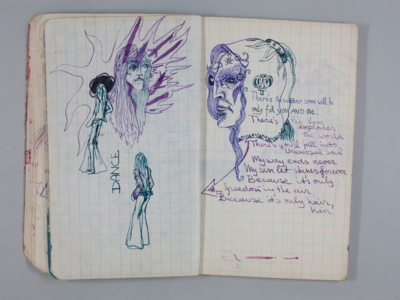 DANCE
There's
only for you and me.
There's the
explores
the world
There's you'll fall into
universal soul
My way ends never
My sun let shines forever
Because it's only
freedom in the air
Because it's only hair,
hair